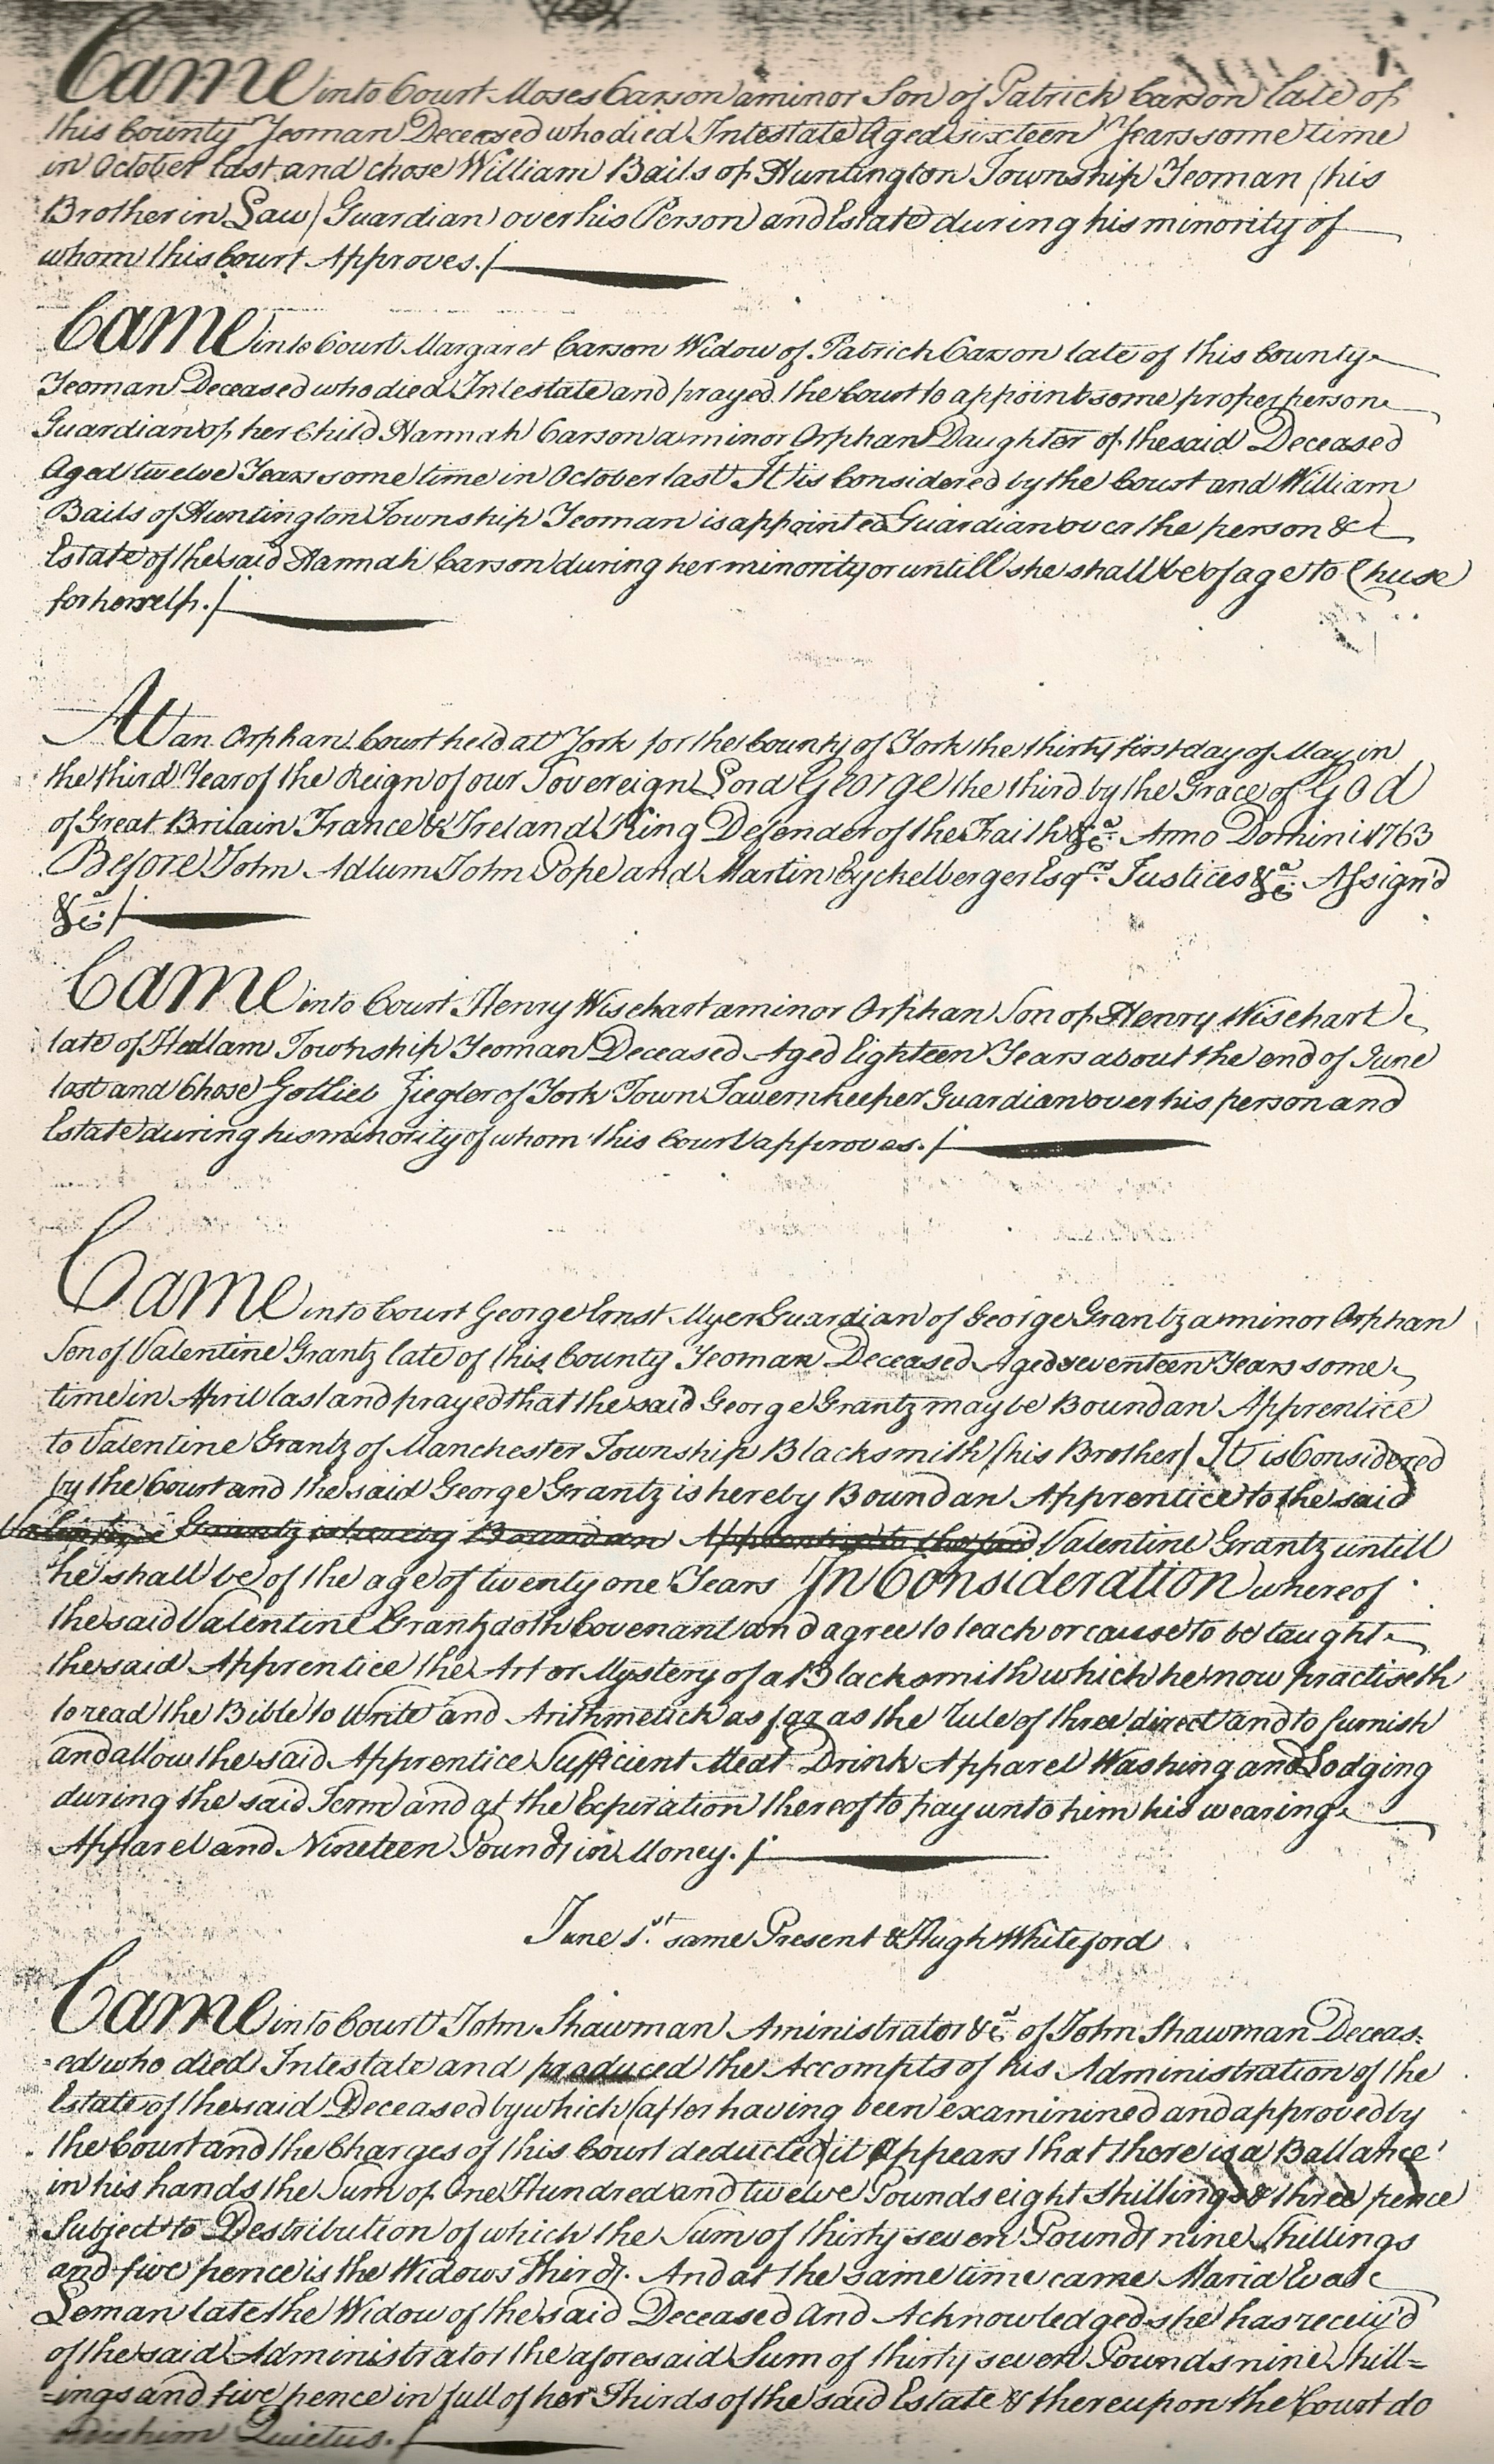 Came into Court Moses Carson a minor Son of Patrick Carson late of
this County Yeoman Deceased who died Intestate Aged sixteen Years some time
in October last and chose William Bails of Huntington Township Yeoman (his
Brother in Law) Guardian over his Person and Estate during his minority of
whom this Court Approves./
Came into Court Margaret Carson Widow of Patrick Carson late of this County
Yeoman Deceased who died Intestate and prayed the Court to appoint some proper person
Guardian of her Child Hannah Carson a minor Orphan Daughter of the said Deceased
Aged twelve Years some time in October last It is Considered by the Court and William
Bails of Huntington Township Yeoman is appointed Guardian over the person &
Estate of the said Hannah Carson during her minority or untill she shall be of age to Chuse
for herself./
At an Orphans Court held at York for the County of York the thirty first day of May in
the third Year of the Reign of our Sovereign Lord George the third by the Grace of God
of Great Britain France & Ireland King Defender of the Faith &ca. Anno Domini 1763
Before John Adlum John Pope and Martin Eyckelberger Esqrs. Justices &ca. Assign'd
&ca./
Came into Court Henry Wisehart a minor Orphan Son of Henry Wisehart
late of Hellam Township Yeoman Deceased Aged Eighteen Years about the end of June
last and Chose Gotlieb Ziegler of York Town Tavernkeeper Guardian over his person and
Estate during his minority of whom this Court approves./
Came into Court George Ernst Myer Guardian of George Grantz a minor Orphan
Son of Valentine Grantz late of this County Yeoman Deceased Aged seventeen Years some
time in April last and prayed that the said George Grantz may be Bound an Apprentice
to Valentine Grantz of Manchester Township Blacksmith (his Brother) It is Considered
by the Court and the said George Grantz is hereby Bound an Apprentice to the said
Valentine Grantz is hereby Bound an Apprentice to the said Valentine Grantz untill
he shall be of the age of twenty one Years In Consideration whereof
the said Valentine Grantz doth Covenant and agree to teach or cause to be taught
the said Apprentice the Art or Mystery of a Blacksmith which he now practiseth
to read the Bible to Write and Arithmetick as far as the Rule of three direct and to furnish
and allow the said Apprentice Sufficient Meat Drink Apparel Washing and Lodging
during the said Term and at the Expiration thereof to pay unto him his wearing
Apparel and Nineteen Pounds in Money./
June 1st. same Present & Hugh Whiteford
Came into Court John Shawman Aministrator &ca. of John Shawman Deceas=
=ed who died Intestate and produced the Accompts of his Administration of the
Estate of the said Deceased by which (after having been examinined and approved by
the Court and the Charges of this Court deducted) it Appears that there is a Ballance
in his hands the Sum of One Hundred and twelve Pounds eight shillings & three pence
Subject to Destribution of which the Sum of thirty seven Pounds nine Shillings
and five pence is the Widows Thirds. And at the same time came Maria
Leman late the Widow of the said Deceased and Acknowledged she has receiv'd
of the said Administrator the aforesaid Sum of thirty seven Pounds nine Shill=
=ings and five pence in full of her Thirds of the said Estate & thereupon the Court do
him Quietus./